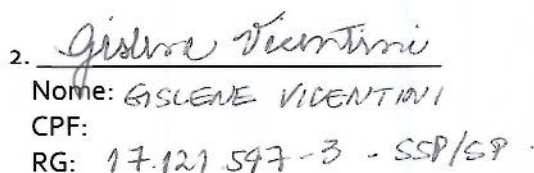 2. Gislene Vicentini
Nome: GISLENE VICENTINI
CPF:
RG: 17.121.597-3 - SSP/SP